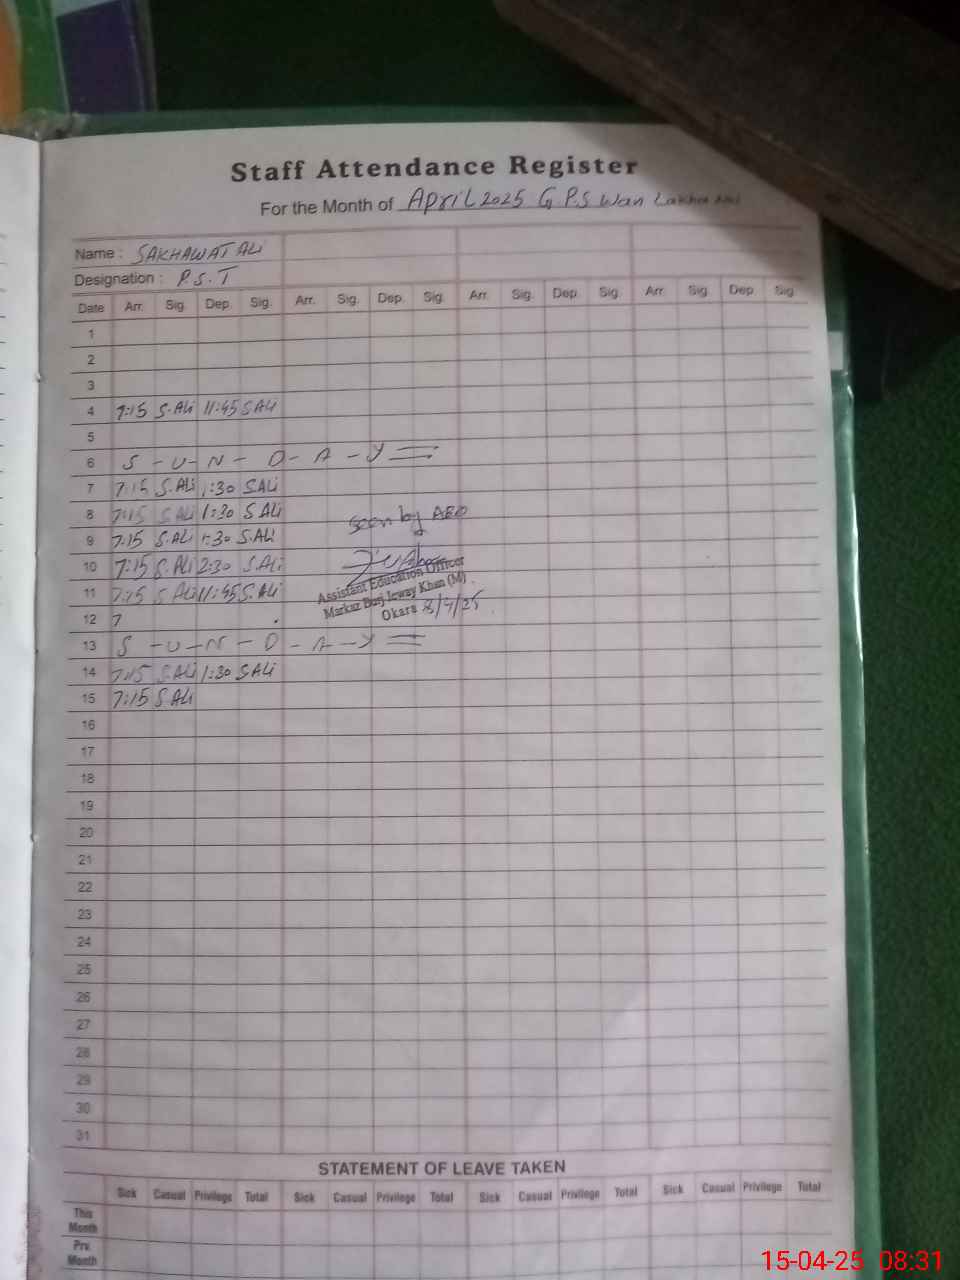 Staff Attendance Register
For the Month of April 2025 G P.S Wan Lakha
Name : SAKHAWAT ALI
Designation : P.S.T
Date Arr. Sig. Dep. Sig. Arr. Sig. Dep. Sig. Arr. Sig. Dep. Sig. Arr. Sig. Dep. Sig.
1
2
3
4 7:15 S.Ali 11:45 S.Ali
5
6 S - U - N - D - A - Y =
7 7:15 S.Ali 1:30 S.Ali
8 7:15 S.Ali 1:30 S.Ali
seen by AEO
9 7:15 S.Ali 1:30 S.Ali
10 7:15 S.Ali 2:30 S.Ali
Assistant Education Officer
11 7:15 S.Ali 11:45 S.Ali
Markaz Burj Jeway Khan (M)
Okara 8/4/25
12 7
13 S - U - N - D - A - Y =
14 7:15 S.Ali 1:30 S.Ali
15 7:15 S.Ali
16
17
18
19
20
21
22
23
24
25
26
27
28
29
30
31
STATEMENT OF LEAVE TAKEN
Sick Casual Privilege Total Sick Casual Privilege Total Sick Casual Privilege Total Sick Casual Privilege Total
This Month
Prv. Month
15-04-25 08:31